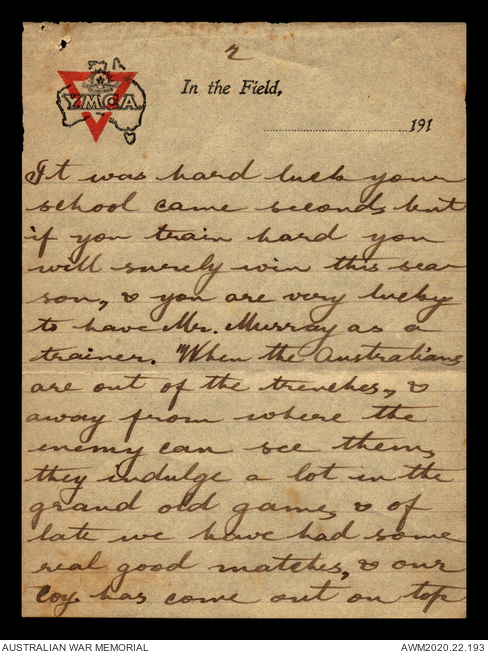 2
YMCA
In the Field,
191
It was hard luck your
school came second, but
if you train hard you
will surely win this sea-
son, & you are very lucky
to have Mr. Murray as a
trainer. When the Australians
are out of the trenches, &
away from where the
enemy can see them,
they indulge a lot in the
grand old game, & of
late we have had some
real good matches, & our
Coy has come out on top
AUSTRALIAN WAR MEMORIAL
AWM2020.22.193